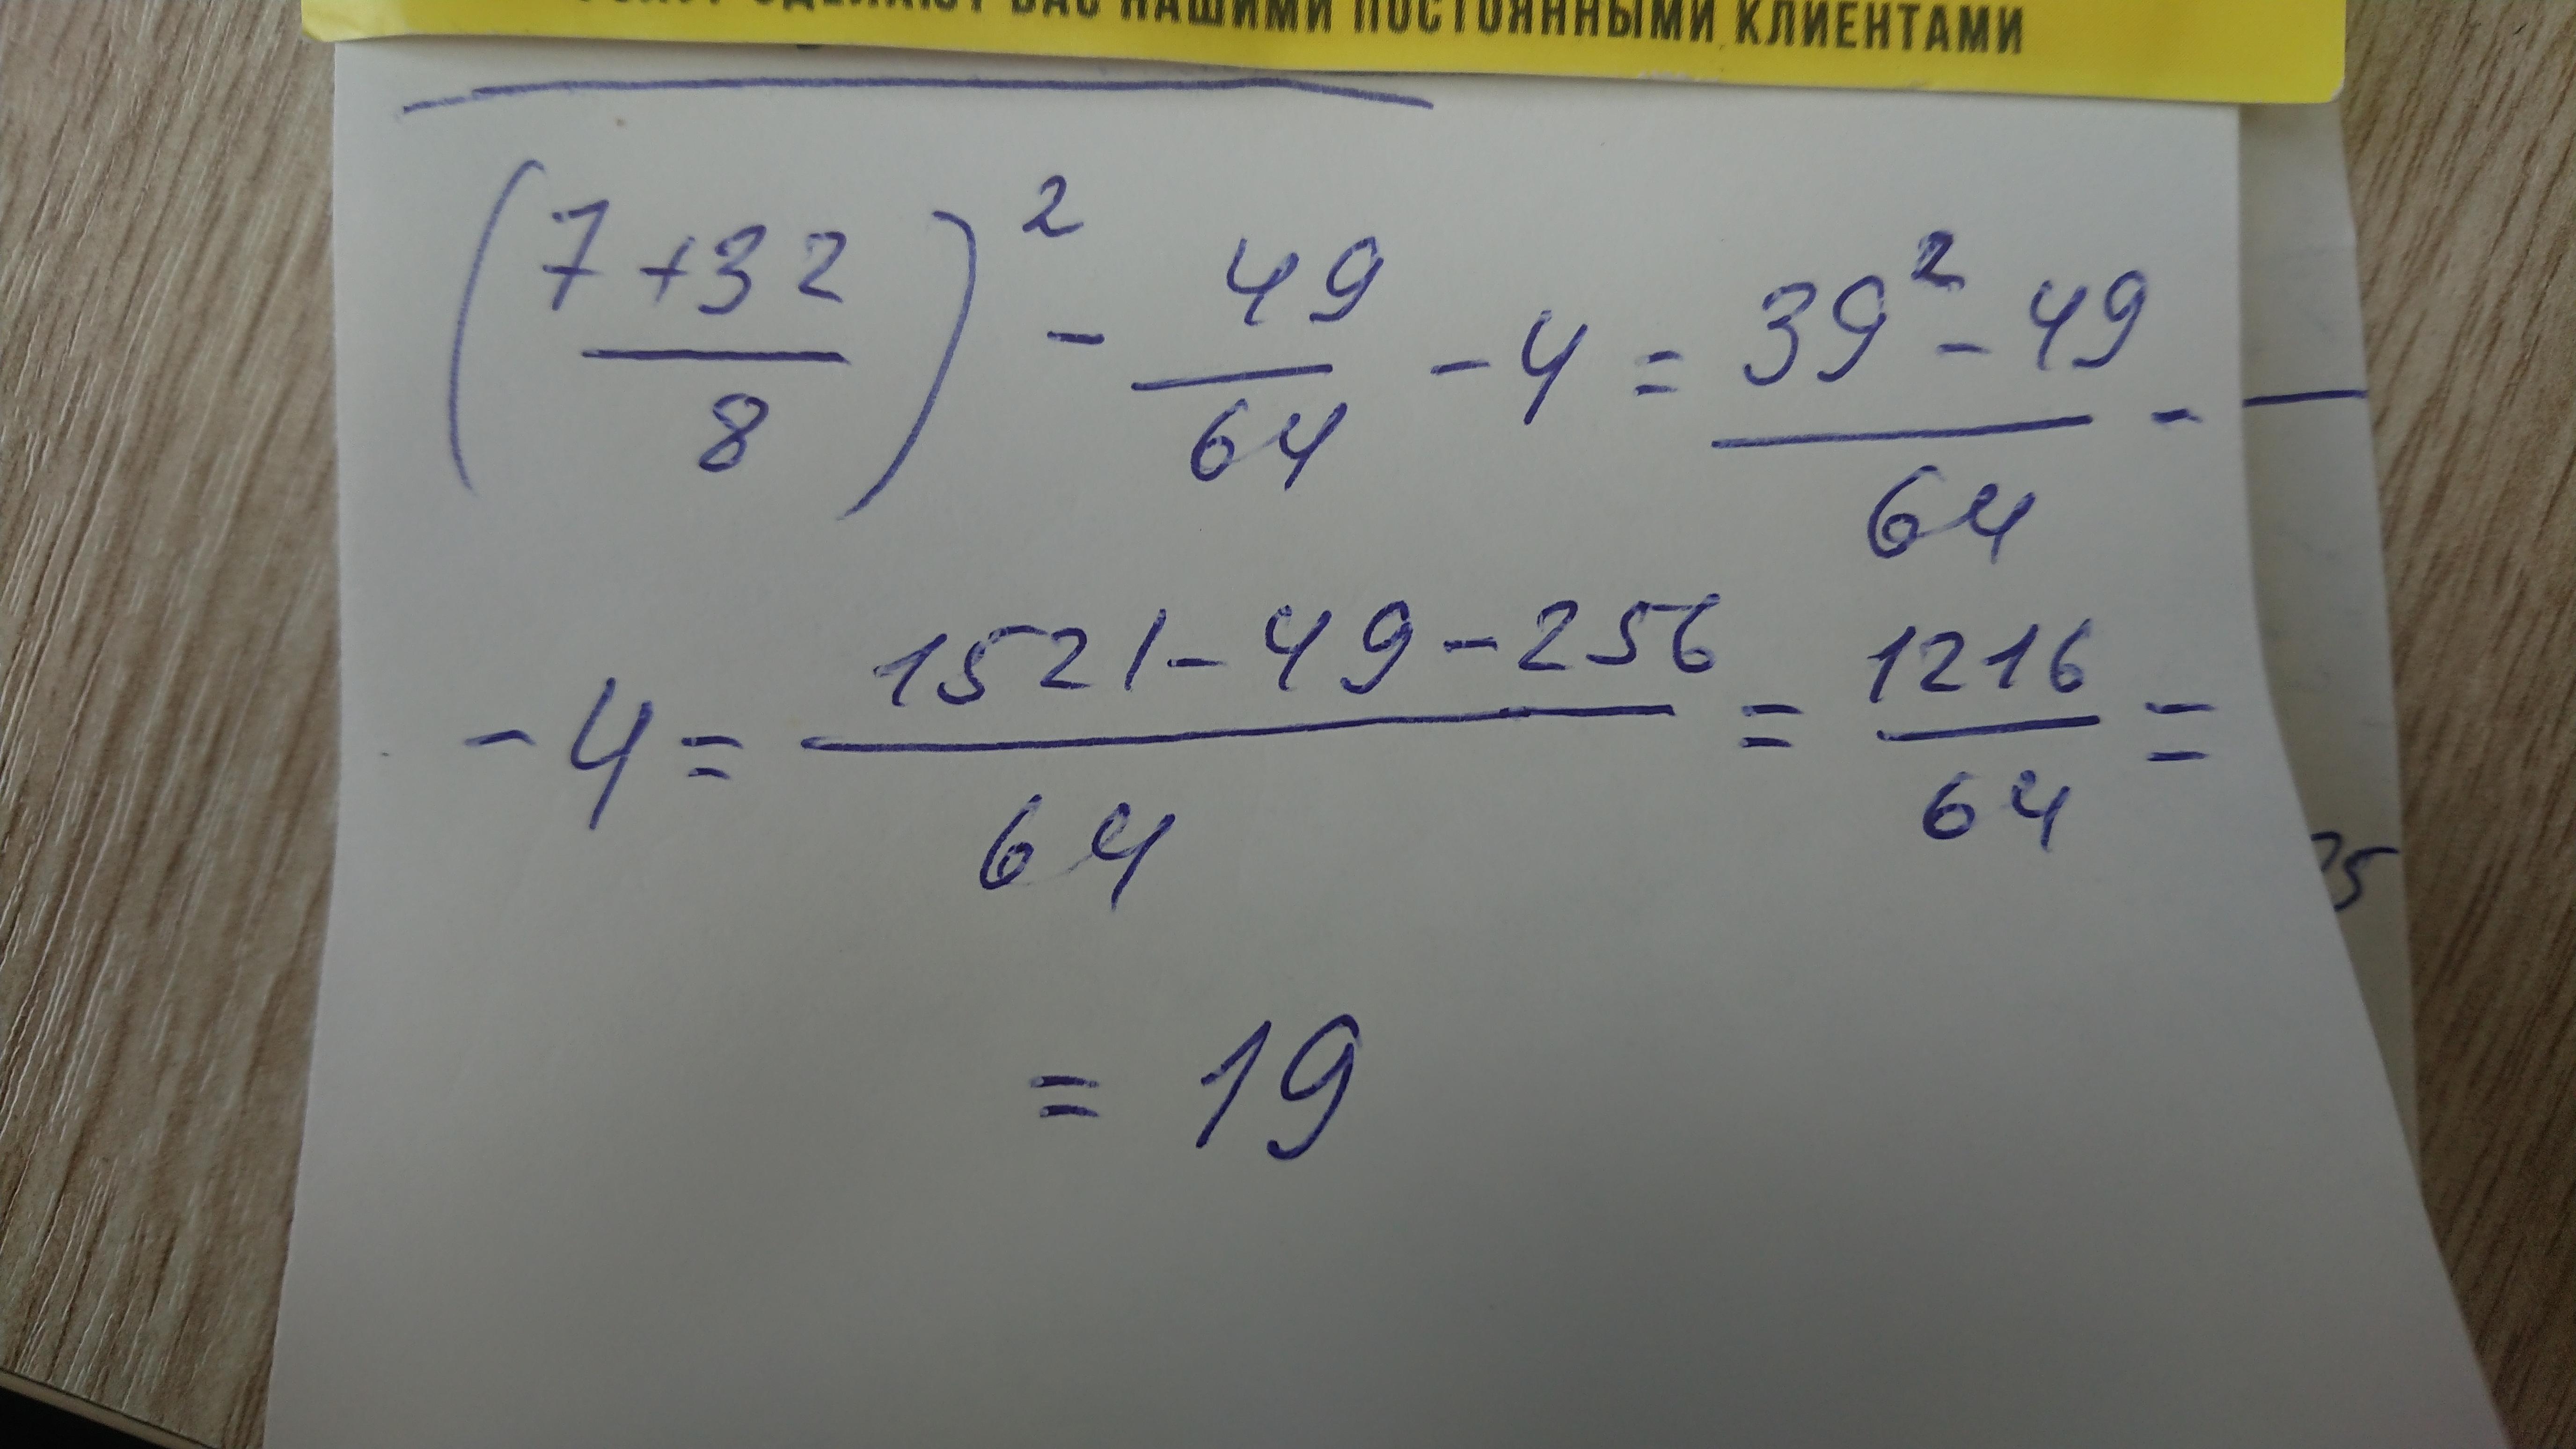 СДЕЛАЮТ ВАС НАШИМИ ПОСТОЯННЫМИ КЛИЕНТАМИ
(7+32/8)² - 49/64 - 4 = 39² - 49/64 -
- 4 = 1521 - 49 - 256/64 = 1216/64 =
= 19